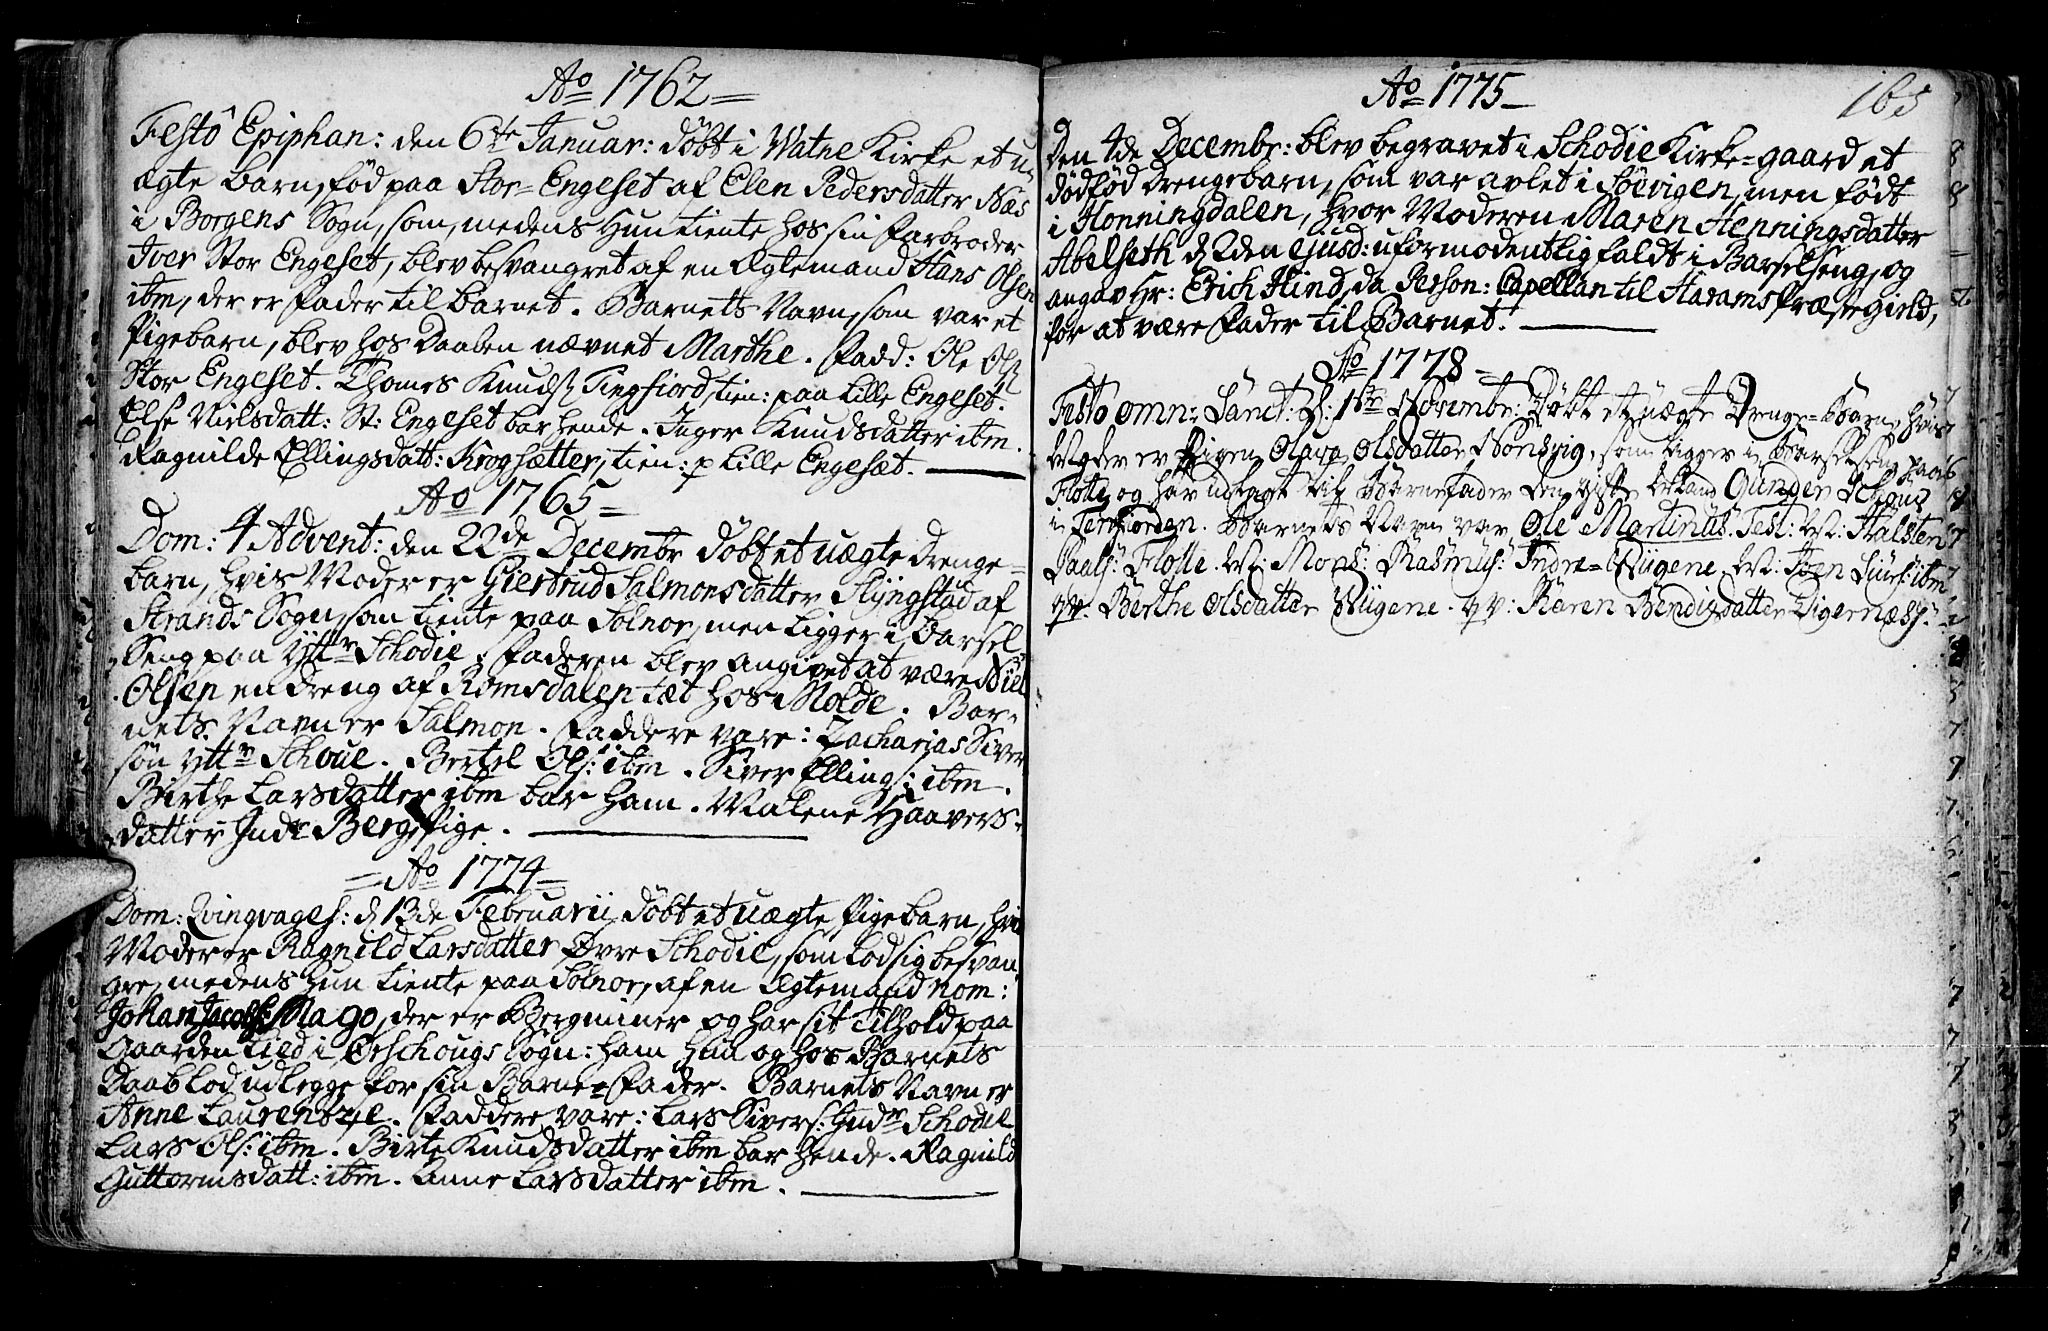 Ao 1762
Festô Epiphan: den 6te Januar: døbt i Watne Kirke et u-
ægte barn, fød paa Stor-Engeset af Elen Pedersdatter Næs
i Borgens Sogn, som, medens hun tiente hos sin Farbroder
Iver Stor Engeset, blev besvangret af en Ægtemand Hans Olsen
ibm, der er fader til barnet. Barnets Navn, som var et
Pigebarn, blev hos Daaben nævnet Marthe. Fadd: Ole Ols:
Stor Engeset. Thomes Knuds: Tingfiord, tien: paa Lille Engeset.
Else Nielsdatt: St: Engeset bar hende. Inger Knudsdatter ibm.
Ragnilde Ellingsdatt: Krogsætter, tien: p Lille Engesæt.
Ao 1765
Dom: 4 Advent: den 22de Decembr døbt et uægte Drenge-
barn, hvis Moder er Giertrud Salmonsdatter Slyngstad af
Strands Sogn, som tiente paa Solnor, men ligger i Barsel
Seng paa Yttr Schodie. Faderen blev angivet at være Niels
Olsen en dreng af Romsdalen tæt hos Molde. Bar-
nets Navn er Salmon. Faddere vare: Zacharias Siver
søn Yttr Schoue. Bertel Ols: ibm. Siver Ellings: ibm.
Birthe Larsdatter ibm bar ham. Malene Haavers-
datter Indr Berg, Pige.
Ao 1774
Dom: Qvinqvages: d 13de Februarii døbt et uægte Pigebarn, hvis
Moder er Ragnild Larsdatter Øvre Schodie, som lod sig besvan-
gre, medens hun tiente paa Solnor, af en Ægtemand nom:
Johan Jacobs: Mago, der er Bergminer og har sit Tilhold paa
Gaarden Lied i Ørschougs Sogn: ham hun og hos Barnets
Daab lod udlegge for sin Barne-Fader. Barnets Navn er
Anne Laurentze. Faddere vare: Lars Sivers: Indr Schodie
Lars Ols: ibm. Birte Knudsdatter ibm bar hende. Ragnild
Guttormsdatt: ibm. Anne Larsdatter ibm.
Ao 1775
165
Den 4de Decembr: blev begravet i Schodie Kirke-gaard et
dødfød Drengebarn, som var avlet i Søevigen, men født
i Honningdalen, hvor Moderen Maren Henningsdatter
Abelseth d 2den ejusd: uformodentlig faldt i Barselseng, og
angav Hr: Erich Hind, da Person: Capellan til Harams Præstegield,
for at være Fader til Barnet.
Ao 1778
Festo omn: Sanct: d: 1ste Novembr: Døbt et uægte Drenge-Barn, hvis
Moder er Pigen Olava Olsdatter Nordsvig, som ligger i Barselseng paa
Flote, og har udlagt til Barnefader den gifte Mand Gunder
i Terfiorden. Barnets Navn var Ole Martinus. Test: M: Halsten
Paals: Flotte. M: Mons: Rasmus: Indre-Wiigene. M: Joen Siurs: ibm,
qv. Berthe Olsdatter Wiigene. qv: Karen Bendixdatter Digernæss: